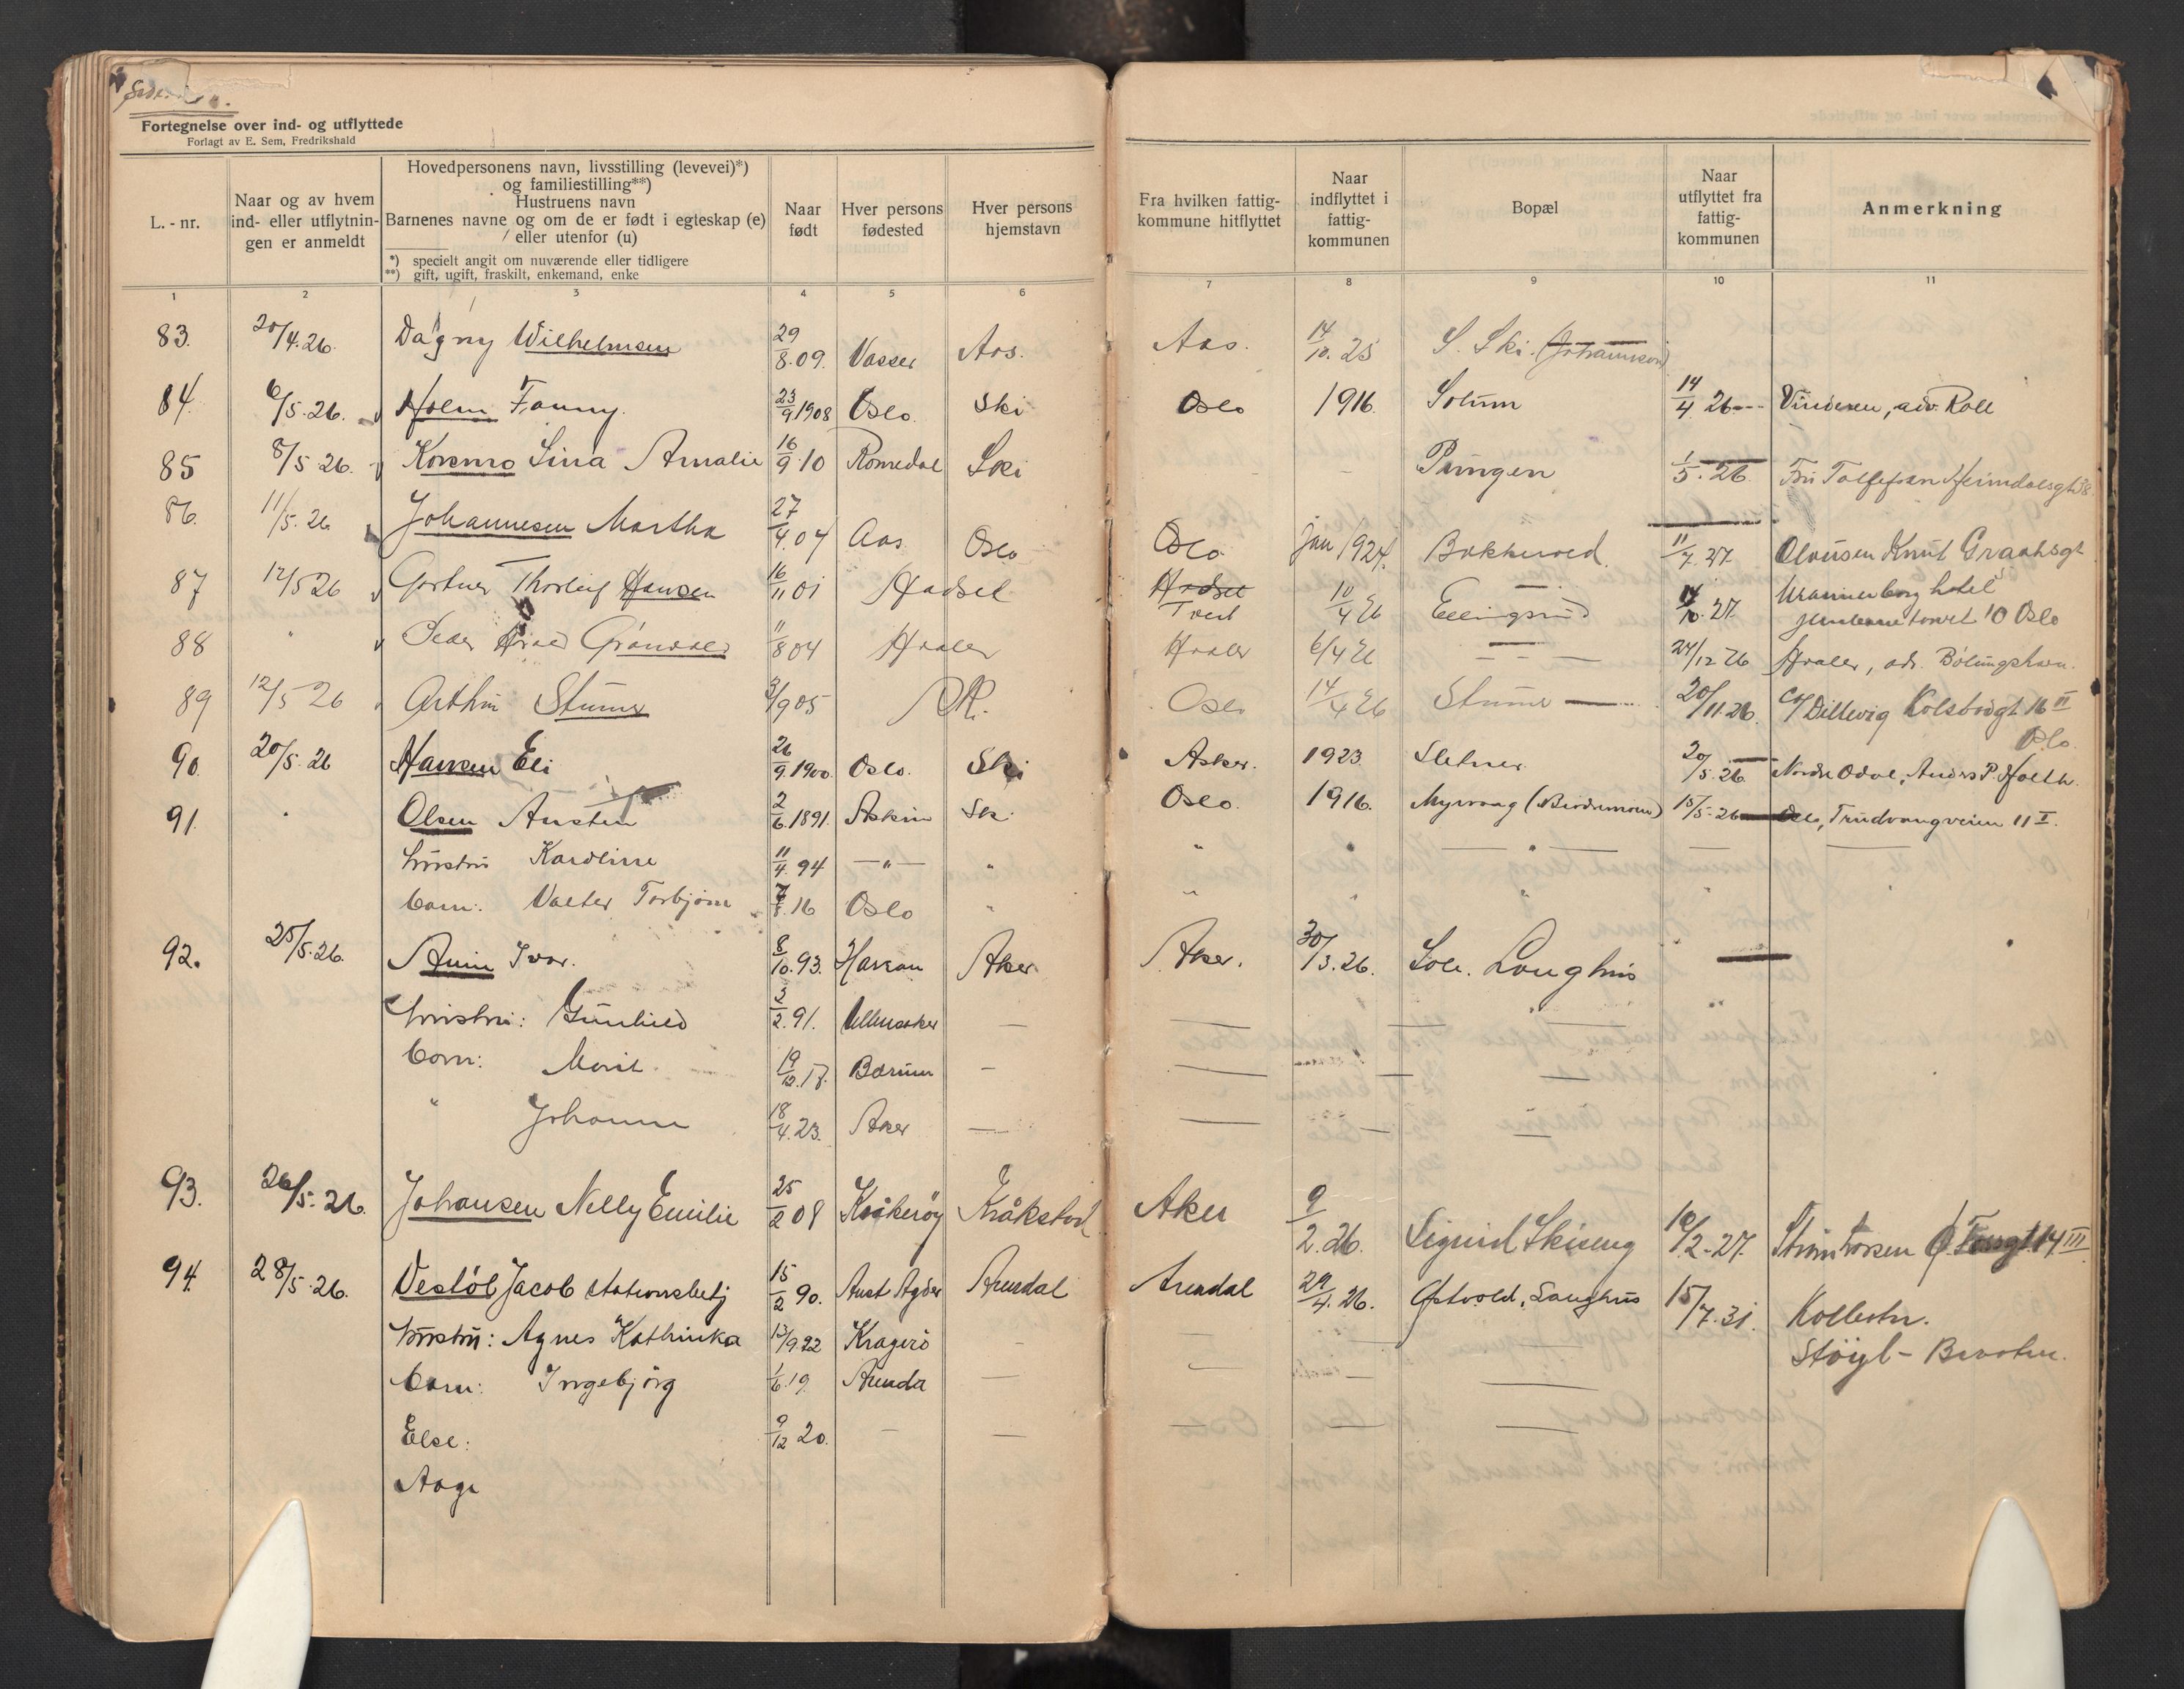 Fortegnelse over ind- og utflyttede
Forlagt av E. Sem, Fredrikshald
L. - nr.
Naar og av hvem
ind- eller utflytnin-
gen er anmeldt
Hovedpersonens navn, livsstilling (levevei)*)
og familiestilling**)
Hustruens navn
Barnenes navne og om de er født i egteskap (e)
eller utenfor (u)
*) specielt angit om nuværende eller tidligere
**) gift, ugift, fraskilt, enkemand, enke
Naar
født
Hver persons
fødested
Hver persons
hjemstavn
Fra hvilken fattig-
kommune hitflyttet
Naar
indflyttet i
fattig-
kommunen
Bopæl
Naar
utflyttet fra
fattig-
kommunen
Anmerkning
1 2 3 4 5 6 7 8 9 10 11
83. 20/4.26. Dagny Wilhelmsen 29/8.09. Vasser Aas. Aas. 14/10.25 S. Ski. (Johannesen)
84. 6/5.26. Holm Fanny. 23/9 1908 Oslo. Ski Oslo 1916. Solum 14/4 26 Vinderen, adr. Roll
85 8/5 26. Korsmo Lina Amalie 16/9 10 Romedal Ski Pungen 1/5.26.
86. 11/5.26 Johannesen Martha 27/4.04 Aas Oslo Oslo Jan 1924. Bakkerød. 11/7.27. Olausen Knut Graahsgt
87 12/5 26 Gartner Thorleif Hansen 16/11 01 Hadsel Hadsel 10/4 26 Ellingsrud 14/10.27.
Tveit
hotel
torvet 10 Oslo
88 " Peder Grønvold 11/8 04 Hvaler Hvaler 6/4 26 24/12 26 Hvaler, adr.
89 12/5 26 Arthur Stumo 3/9 05 Ski. Oslo 14/4 26 Stumo 20/11.26. c/o Dillevig 16 II
Oslo.
90. 20/5.26 Hansen Eli 26/9.1900. Oslo. Ski Asker. 1923. Sletner 20/5.26. Nordre Odal, Anders P. Holth.
91. " Olsen Austin 2/6.1891. Askim Ski Oslo. 1916. Myrvang 15/5.26 Oslo, Trudvangveien 11 I.
hustru Karoline 11/4.94 — " — " " "
barn: Valter Torbjørn 7/8.16 Oslo "
92. 25/5.26. Ivar. 8/10.93. Aker Aker. 30/3.26. Sole. Langhus
hustru: Gunhild 3/2.91. Ullensaker —
barn: Marit 19/12.17. Bærum —
" Johanne 18/4.23. Aker —
93. 26/5.26. Johansen Nelly Emilie 25/2 08 Kråkerøy Kråkstad Aker 9/2.26. Sigurd Skiseng 10/2.27.
94. 28/5.26. Vestøl Jacob stationsbetj 15/2 90. Aust Agder Arendal Arendal 29/4.26. Østvold, Langhus 15/7.31. Kolbotn.
hustru: Agnes Kathinka 13/9.22 Kragerø —
barn: Ingebjørg 1/6.19 Arendal —
Else: 9/12 20. — —
Aage